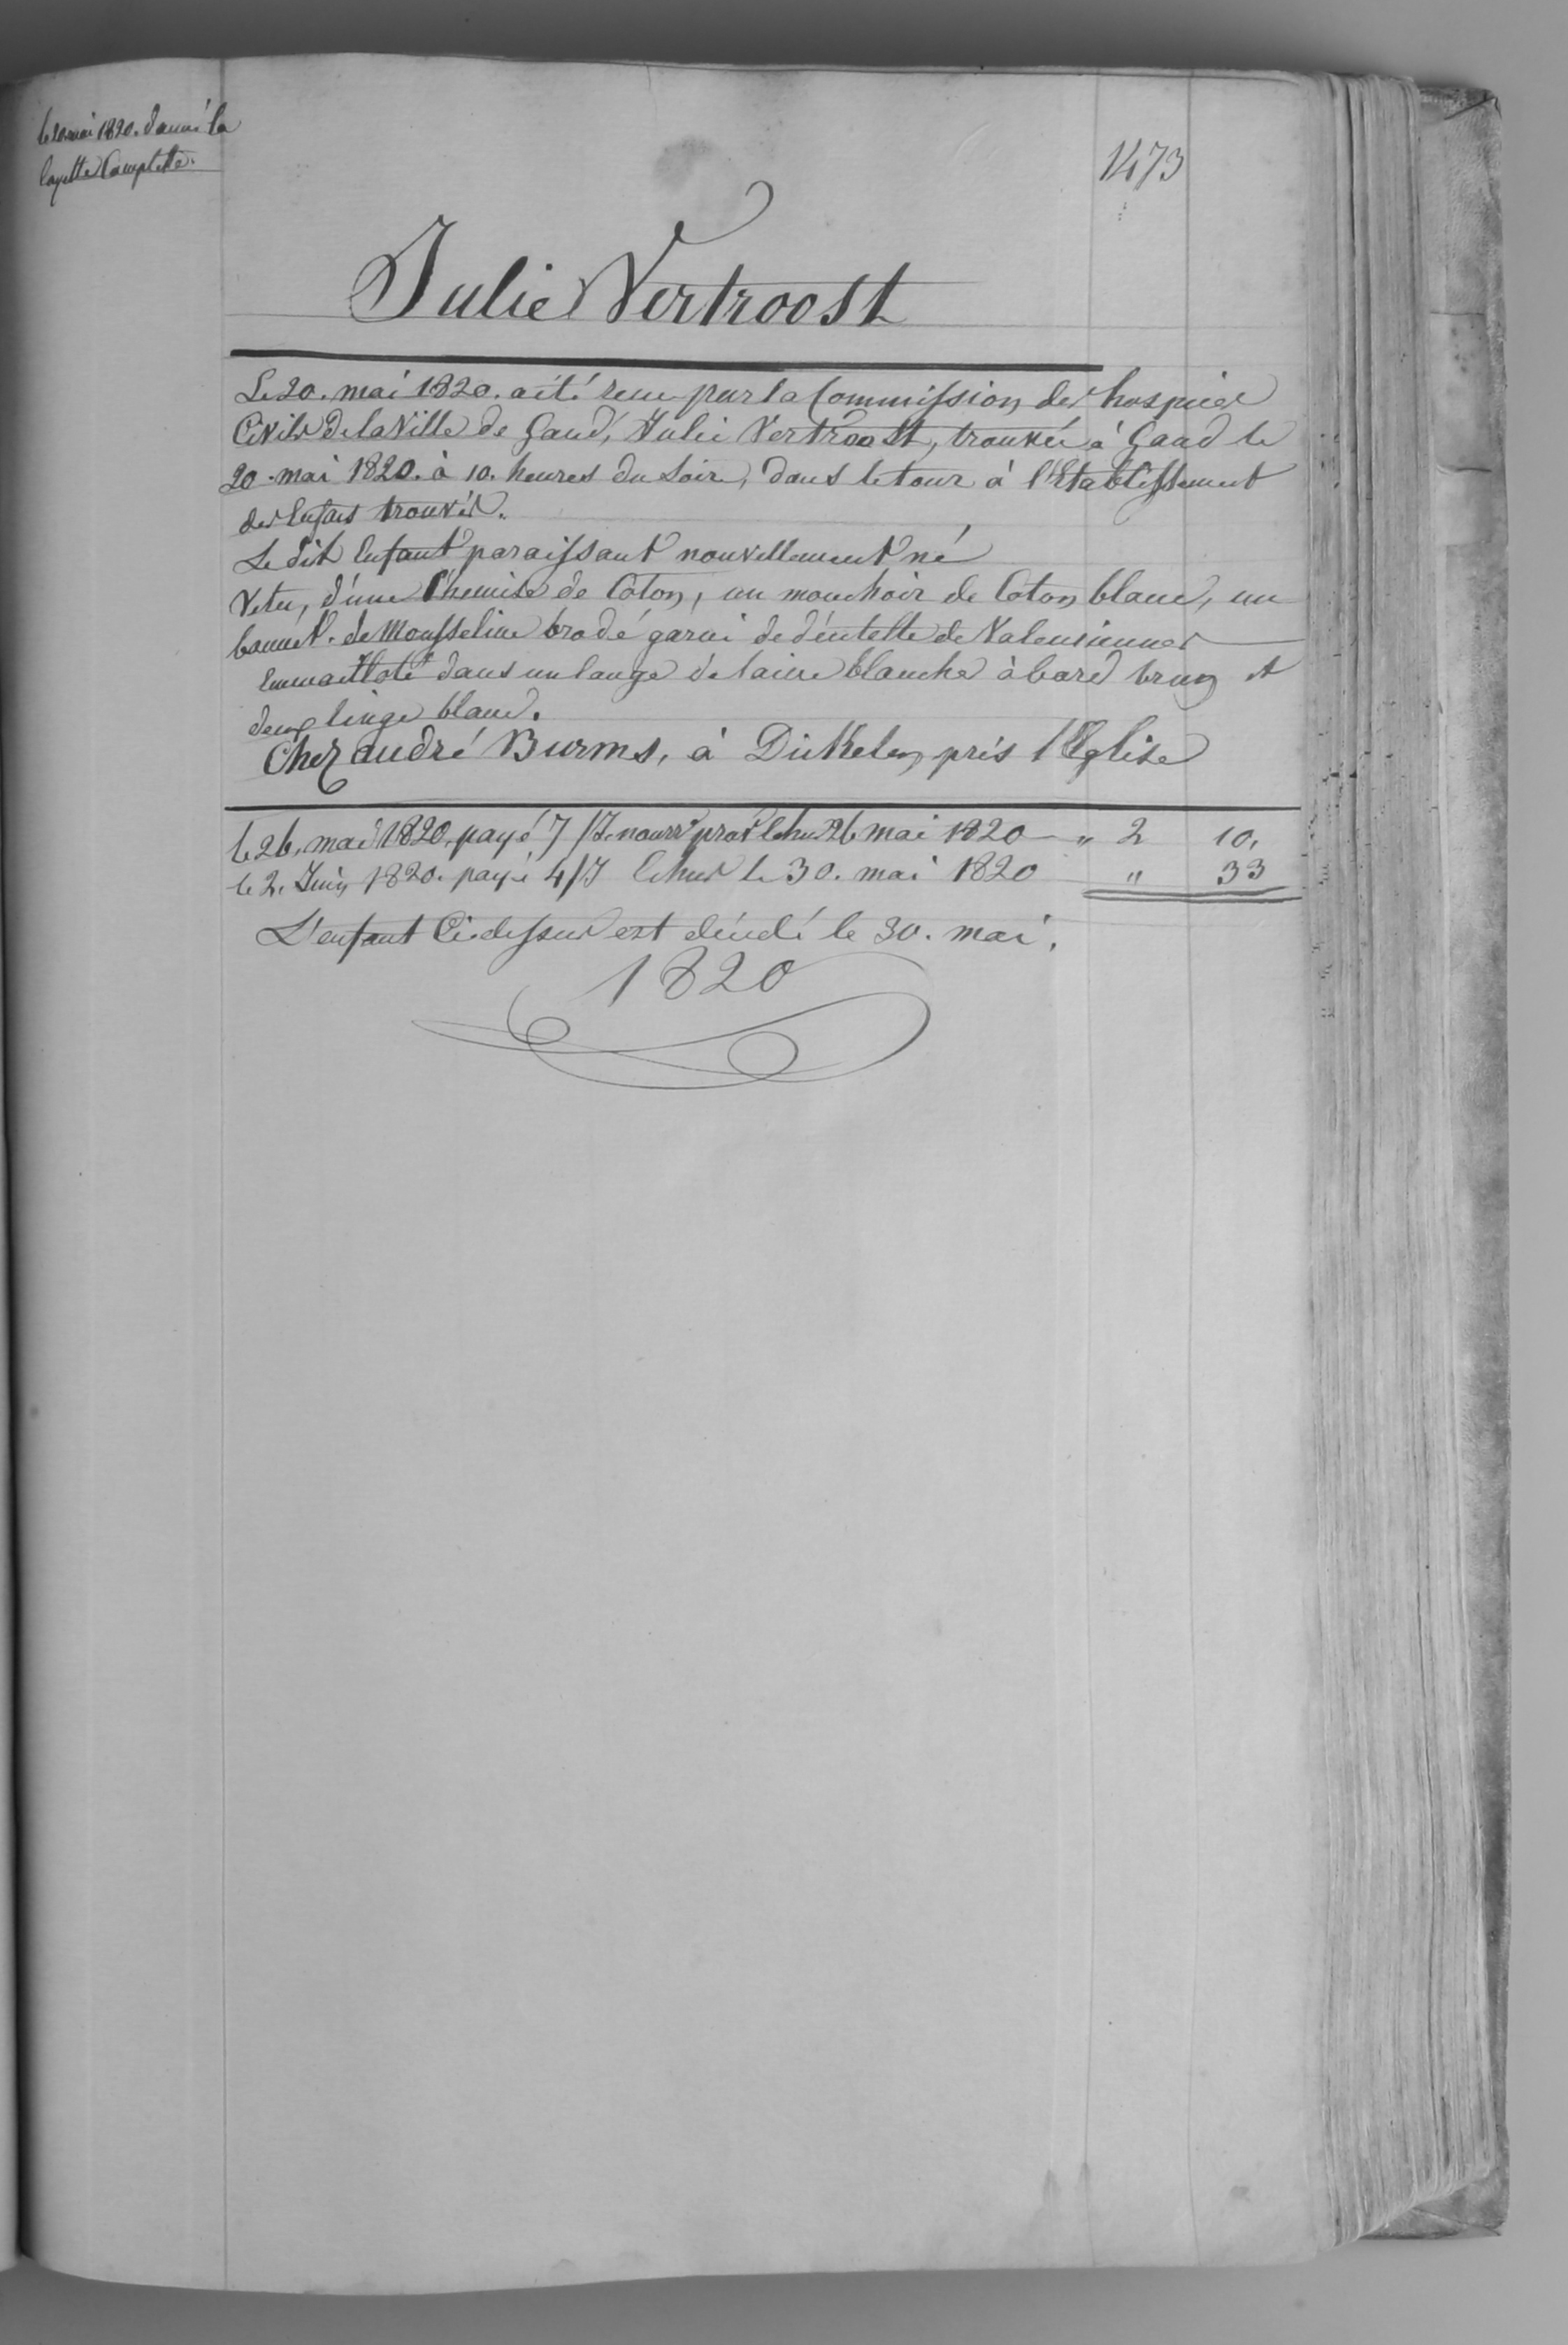 le 20 mai 1820. donné la
layette Complette.
1473
Julie Vertroost
Le 20. mai 1820. a été reçue par la Commission des hospices
Civils de la Ville de Gand, Julie Vertroost, trouvée à Gand le
20. mai 1820. à 10. heures du Soir, dans le tour à l'Etablissement
des Enfans trouvés.
Le dit Enfant paraissant nouvellement né
Vetu, d'une Chemise de Coton, un mouchoir de Coton blanc, un
bonnet. de Mousseline brodé garni de déntelle de Valensiennes
Emmailloté dans un lange de laine blanche à bord brun et
deux linge blanc.
Chez andré Burms, à Dikkelen, près l'Eglise
le 26. mai 1820. payé 7/J. nourr prov échus 26 mai 1820 " 2 10.
le 2. Juin 1820. payé 4/J échus le 30. mai 1820 " 33
L'enfant Ci-dessus est décédé le 30. mai.
1820